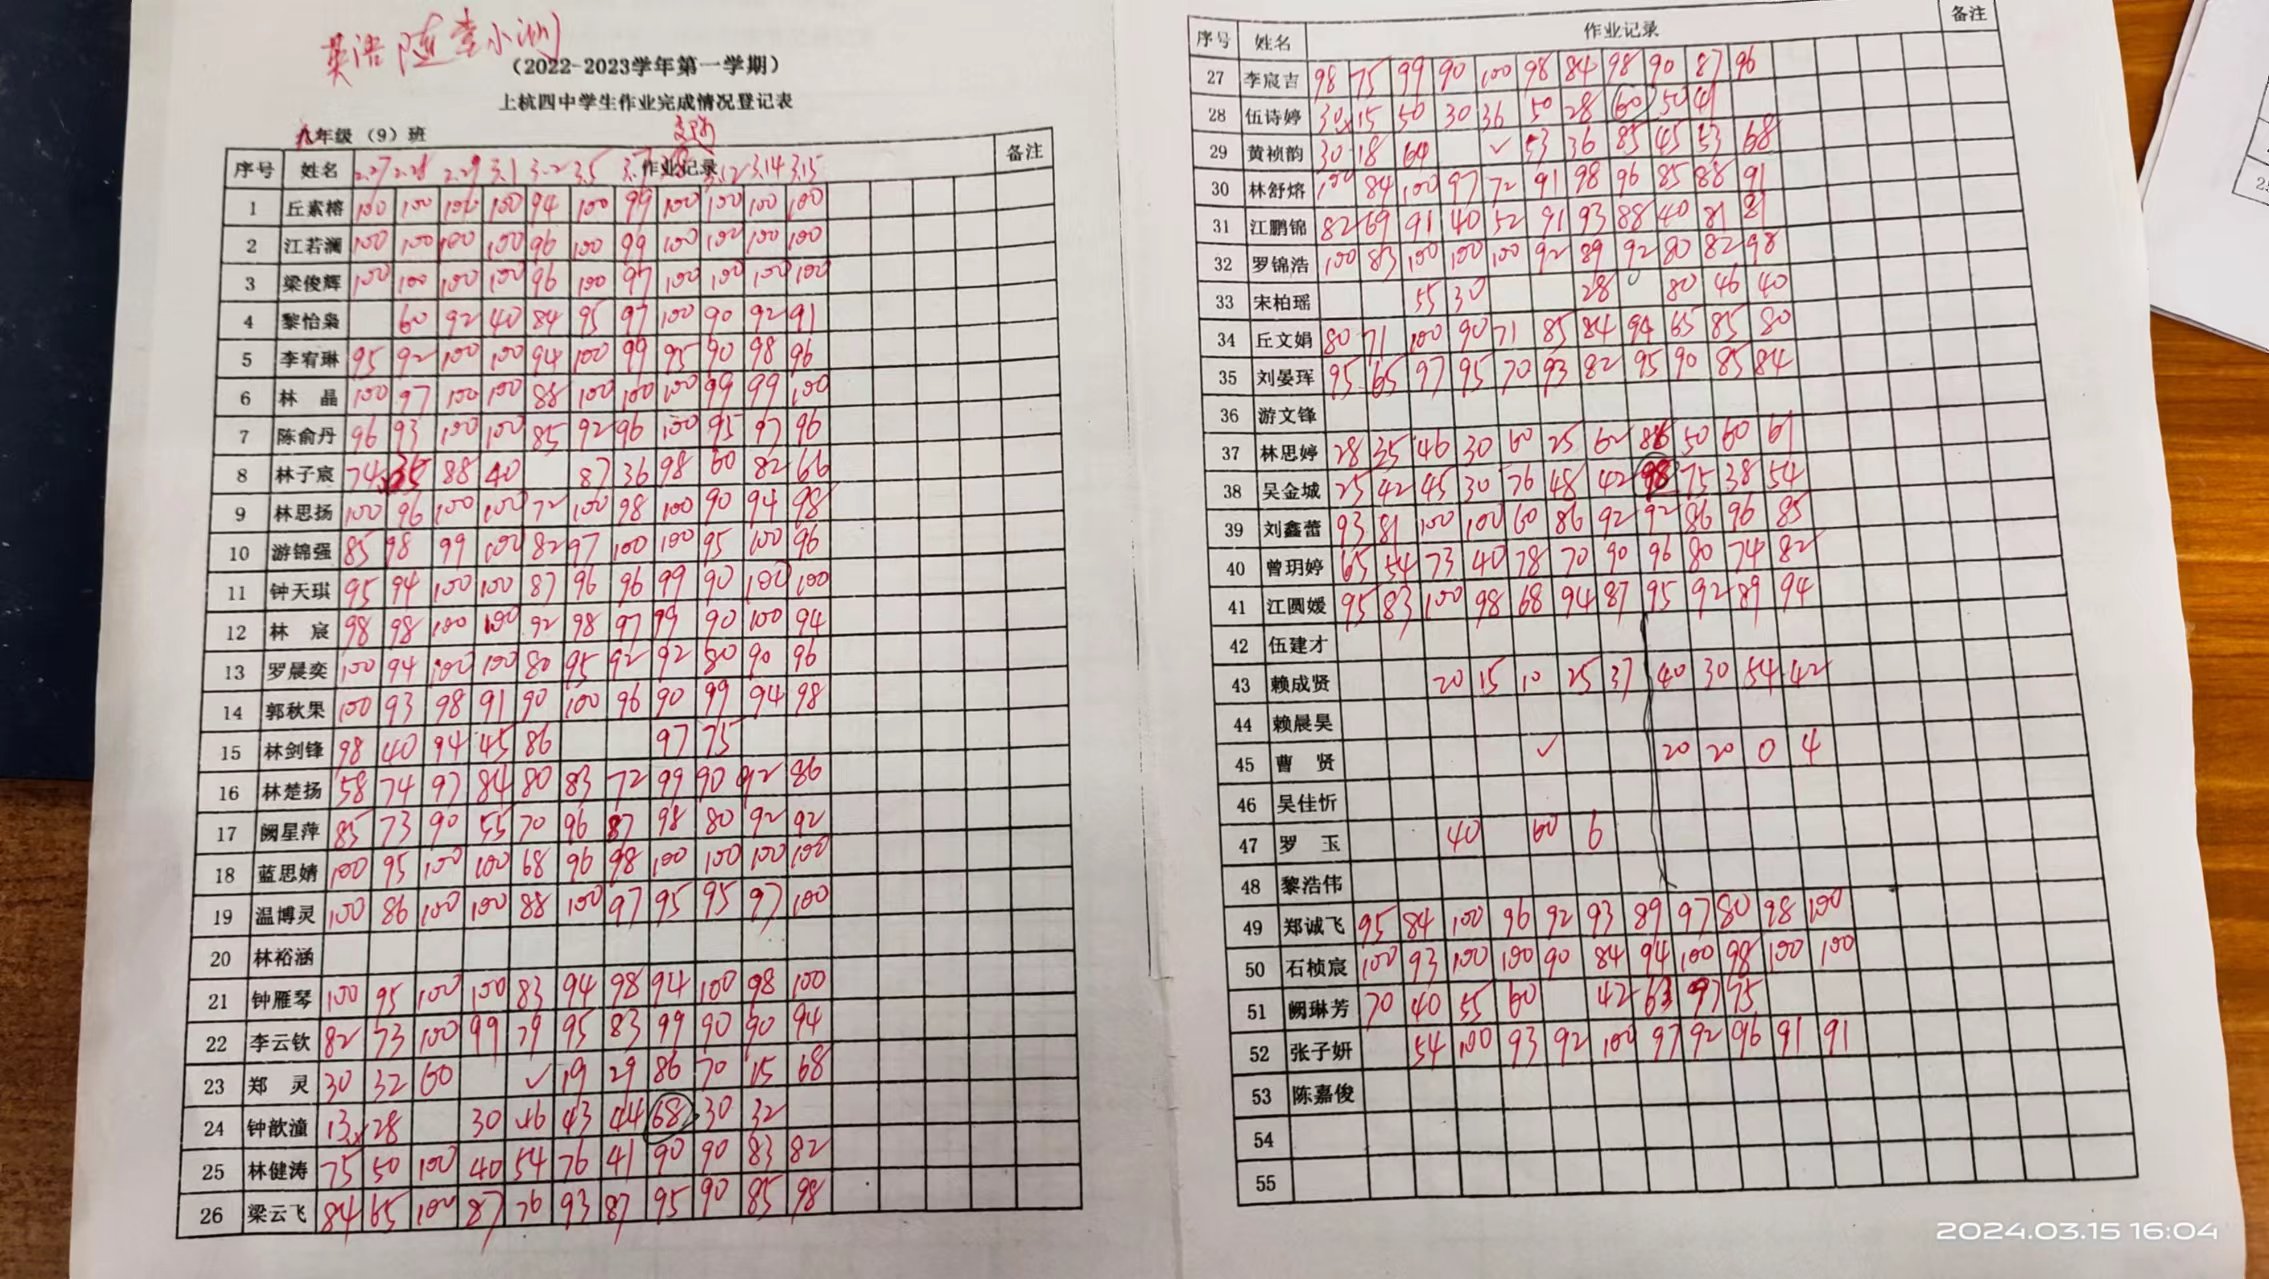 英语 随堂小测
(2022-2023学年第一学期)
上杭四中学生作业完成情况登记表
九年级 (9) 班
序号 姓名 作业记录 备注
2.27 2.28 2.29 3.1 3.2 3.5 3.7 3.12 3.14 3.15
1 丘素榕 100 100 100 100 94 100 99 100 100 100 100
2 江若澜 100 100 100 100 96 100 99 100 100 100 100
3 梁俊辉 100 100 100 100 96 100 97 100 100 100 100
4 黎怡枭 60 92 40 84 95 97 100 90 92 91
5 李宥琳 95 92 100 100 94 100 99 95 90 98 96
6 林 晶 100 97 100 100 88 100 100 100 99 99 100
7 陈俞丹 96 93 100 100 85 92 96 100 95 97 96
8 林子宸 74 35 88 40 87 36 98 60 82 66
9 林思扬 100 96 100 100 72 100 98 100 90 94 98
10 游锦强 85 98 99 100 82 97 100 100 95 100 96
11 钟天琪 95 94 100 100 87 96 96 99 90 100 100
12 林 宸 98 98 100 100 92 98 97 99 90 100 94
13 罗晨奕 100 94 100 100 80 95 92 92 80 90 96
14 郭秋果 100 93 98 91 90 100 96 90 99 94 98
15 林剑锋 98 40 94 45 86 97 75
16 林楚扬 58 74 97 84 80 83 72 99 90 92 86
17 阙星萍 85 73 90 55 70 96 87 98 80 92 92
18 蓝思婧 100 95 100 100 68 96 98 100 100 100 100
19 温博灵 100 86 100 100 88 100 97 95 95 97 100
20 林裕涵
21 钟雁琴 100 95 100 100 83 94 98 94 100 98 100
22 李云钦 82 73 100 99 79 95 83 99 90 90 94
23 郑 灵 30 32 60 ✓ 19 29 86 70 15 68
24 钟歆潼 13 28 30 46 43 44 68 30 32
25 林健涛 75 50 100 40 54 76 41 90 90 83 82
26 梁云飞 84 65 100 87 76 93 87 95 90 85 98
序号 姓名 作业记录 备注
27 李宸吉 98 75 99 90 100 98 84 98 90 87 96
28 伍诗婷 30 15 50 30 36 50 28 60 50 41
29 黄桢韵 30 18 64 ✓ 53 36 85 45 53 68
30 林舒熔 100 84 100 97 72 91 98 96 85 88 91
31 江鹏锦 82 69 91 40 52 91 93 88 40 81 81
32 罗锦浩 100 83 100 100 100 92 89 92 80 82 98
33 宋柏瑶 55 30 28 0 80 46 40
34 丘文娟 80 71 100 90 71 85 84 94 65 85 80
35 刘晏珲 95 65 97 95 70 93 82 95 90 85 84
36 游文锋
37 林思婷 28 35 46 30 60 25 62 86 50 60 61
38 吴金城 25 42 45 30 76 48 42 98 75 38 54
39 刘鑫蕾 93 81 100 100 60 86 92 92 86 96 85
40 曾玥婷 65 54 73 40 78 70 90 96 80 74 82
41 江圆媛 95 83 100 98 68 94 87 95 92 89 94
42 伍建才
43 赖成贤 20 15 10 25 37 40 30 54 42
44 赖晨昊
45 曹 贤 ✓ 20 20 0 4
46 吴佳忻
47 罗 玉 40 60 6
48 黎浩伟
49 郑诚飞 95 84 100 96 92 93 89 97 80 98 100
50 石桢宸 100 93 100 100 90 84 94 100 98 100 100
51 阙琳芳 70 40 55 60 42 63 97 75
52 张子妍 54 100 93 92 100 97 92 96 91 91
53 陈嘉俊
54
55
2024.03.15 16:04